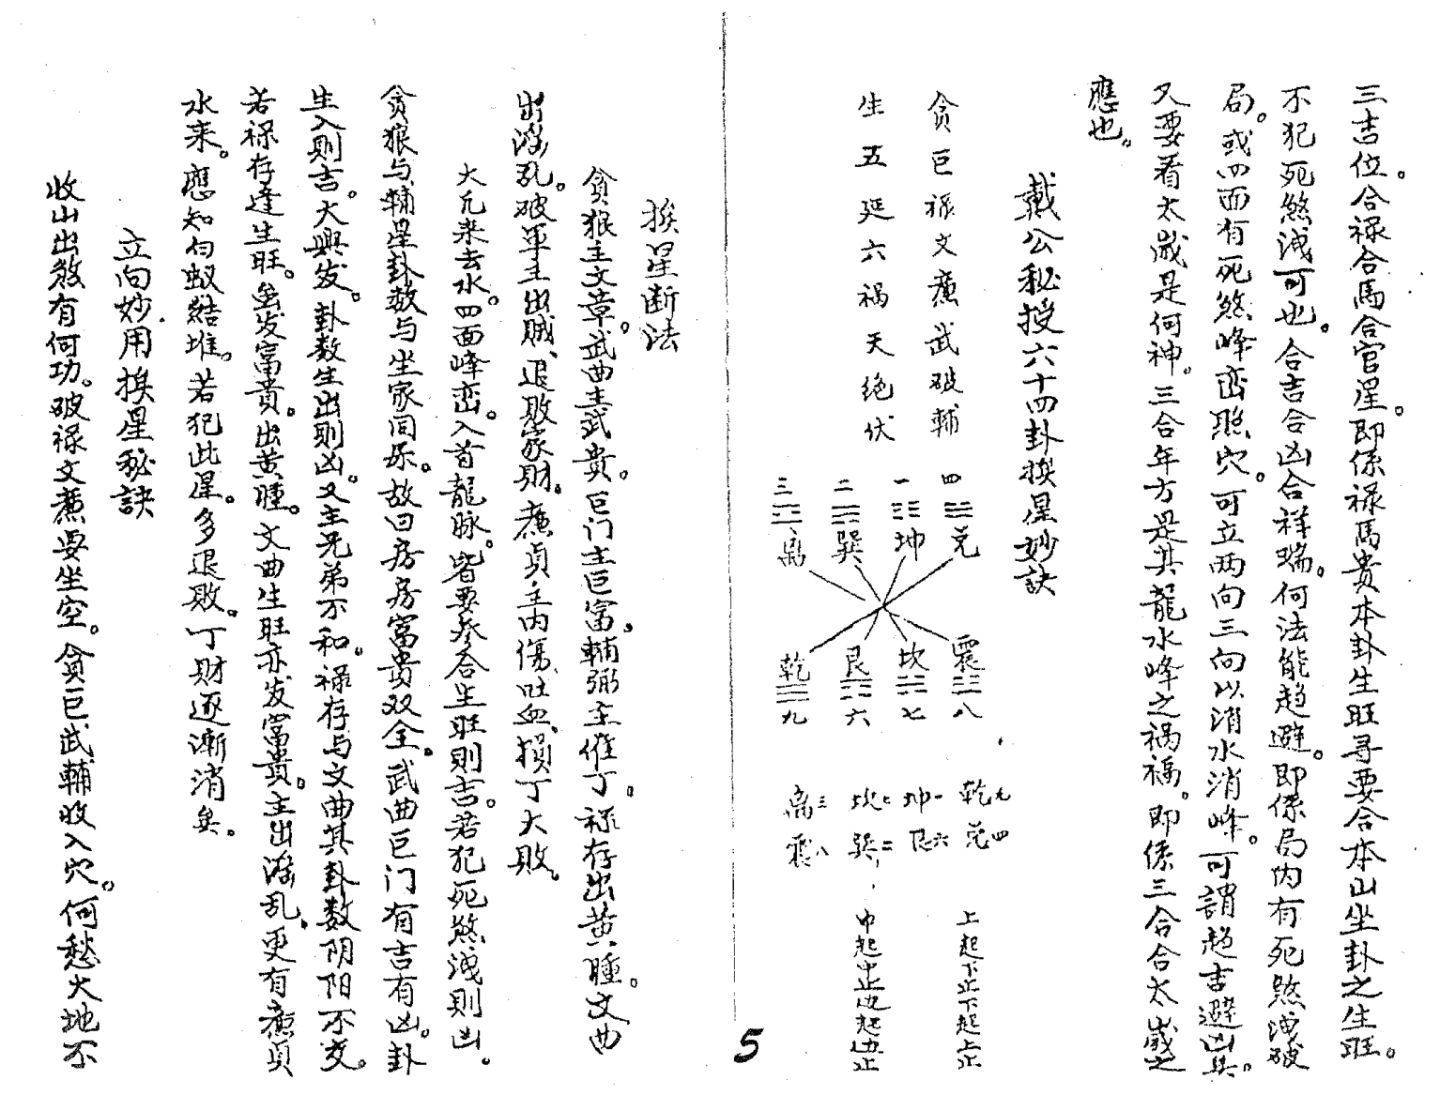 三吉位。合禄合馬合官星。即係禄馬贵本卦生旺寻要合本山坐卦之生旺。
不犯死煞洩可也。合吉合凶合祥瑞。何法能趋避。即係局内有死煞洩破
局。或四面有死煞峰峦照穴。可立两向三向以消水消峰。可謂趋吉避凶其
又要看太歲是何神。三合年方是其龍水峰之祸福。即係三合合太歲之
應也。
戴公秘授六十四卦挨星妙訣
贪巨禄文廉武破輔
生五延六祸天绝伏
四 ☱ 兑
一 ☷ 坤
二 ☴ 巽
三 ☲ 离
震 ☳ 八
坎 ☵ 七
艮 ☶ 六
乾 ☰ 九
乾九 兑四
坤一 艮六
坎七 巽二
离三 震八
上起下止下起上止
中起中止边起边止
5
挨星断法
贪狼主文章。武曲主武贵。巨门主巨富。輔弼主催丁。禄存出黄腫。文曲
出淫乱。破军主出贼、退败家财。廉貞主内傷、吐血、损丁大败。
大凡来去水。四面峰峦。入首龍脉。皆要参合生旺则吉。若犯死煞洩则凶。
贪狼与輔星卦数与坐家同係。故曰房房富贵双全。武曲巨门有吉有凶。卦
生入则吉。大興发。卦数生出则凶。又主兄弟不和。禄存与文曲其卦数阴阳不交。
若禄存逢生旺。虽发富贵。出黄腫。文曲生旺亦发富贵。主出淫乱。更有廉貞
水来。應知白蚁結堆。若犯此星。多退败。丁财逐漸消矣。
立向妙用挨星秘訣
收山出煞有何功。破禄文廉要坐空。贪巨武輔收入穴。何愁大地不